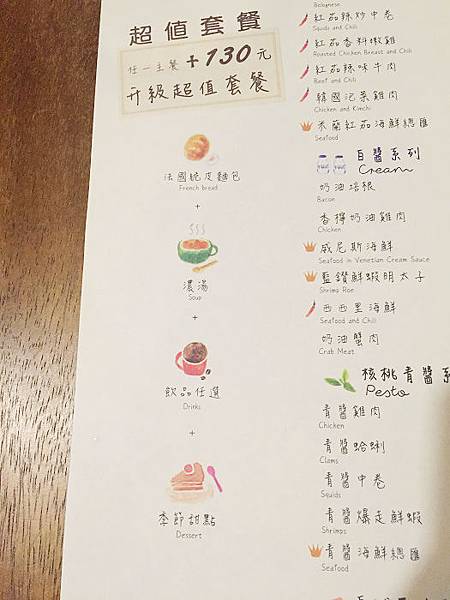 超值套餐
任一主餐+130元
升級超值套餐
法國脆皮麵包
French bread
+
濃湯
Soup
+
飲品任選
Drinks
+
季節甜點
Dessert
Bolognese
紅茄辣炒中卷
Squids and Chili
紅茄香料嫩雞
Roasted Chicken Breast and Chili
紅茄辣味牛肉
Beef and Chili
韓國泡菜雞肉
Chicken and Kimchi
米蘭紅茄海鮮總匯
Seafood
白醬系列
Cream
奶油培根
Bacon
香檸奶油雞肉
Chicken
威尼斯海鮮
Seafood in Venetian Cream Sauce
藍鑽鮮蝦明太子
Shrimp Roe
西西里海鮮
Seafood and Chili
奶油蟹肉
Crab Meat
核桃青醬系
Pesto
青醬雞肉
Chicken
青醬蛤蜊
Clams
青醬中卷
Squids
青醬爆走鮮蝦
Shrimps
青醬海鮮總匯
Seafood